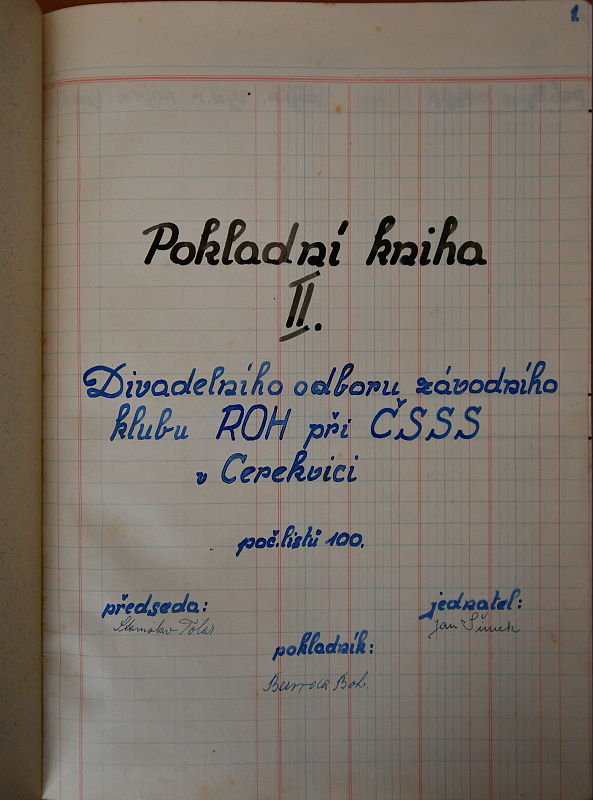 1.
Pokladní kniha
II.
Divadelního odboru závodního
klubu ROH při ČSSS
v Cerekvici
poč.listů 100.
předseda:
Stanislav Tolar
jednatel:
Jan Šimek
pokladník:
Boh.